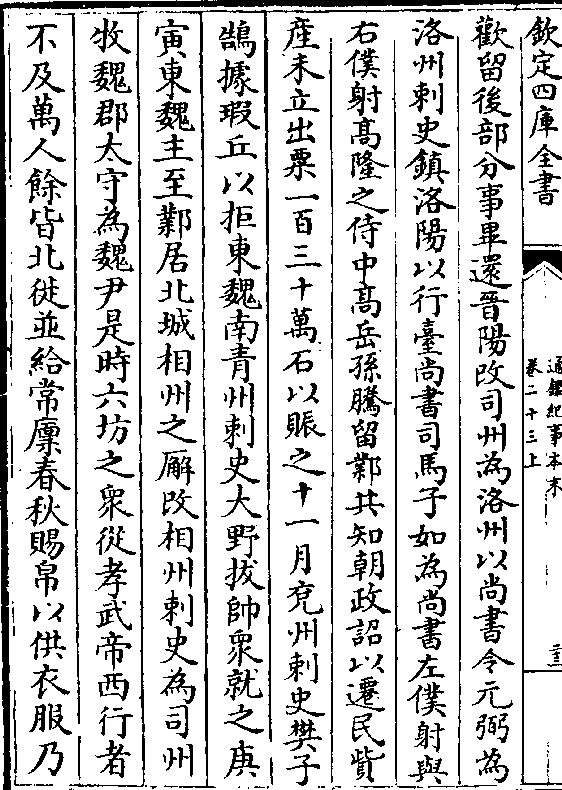 欽定四庫全書
通鑑紀事本末
卷二十三上
三
歡留後部分事畢還晉陽改司州為洛州以尚書令元弼為
洛州刺史鎮洛陽以行臺尚書司馬子如為尚書左僕射與
右僕射髙隆之侍中髙岳孫騰留鄴共知朝政詔以遷民貲
産未立出粟一百三十萬石以賑之十一月兖州刺史樊子
鵠據瑕丘以拒東魏南青州刺史大野拔帥衆就之庚
寅東魏主至鄴居北城相州之廨改相州刺史為司州
牧魏郡太守為魏尹是時六坊之衆從孝武帝西行者
不及萬人餘皆北徙並給常廩春秋賜帛以供衣服乃